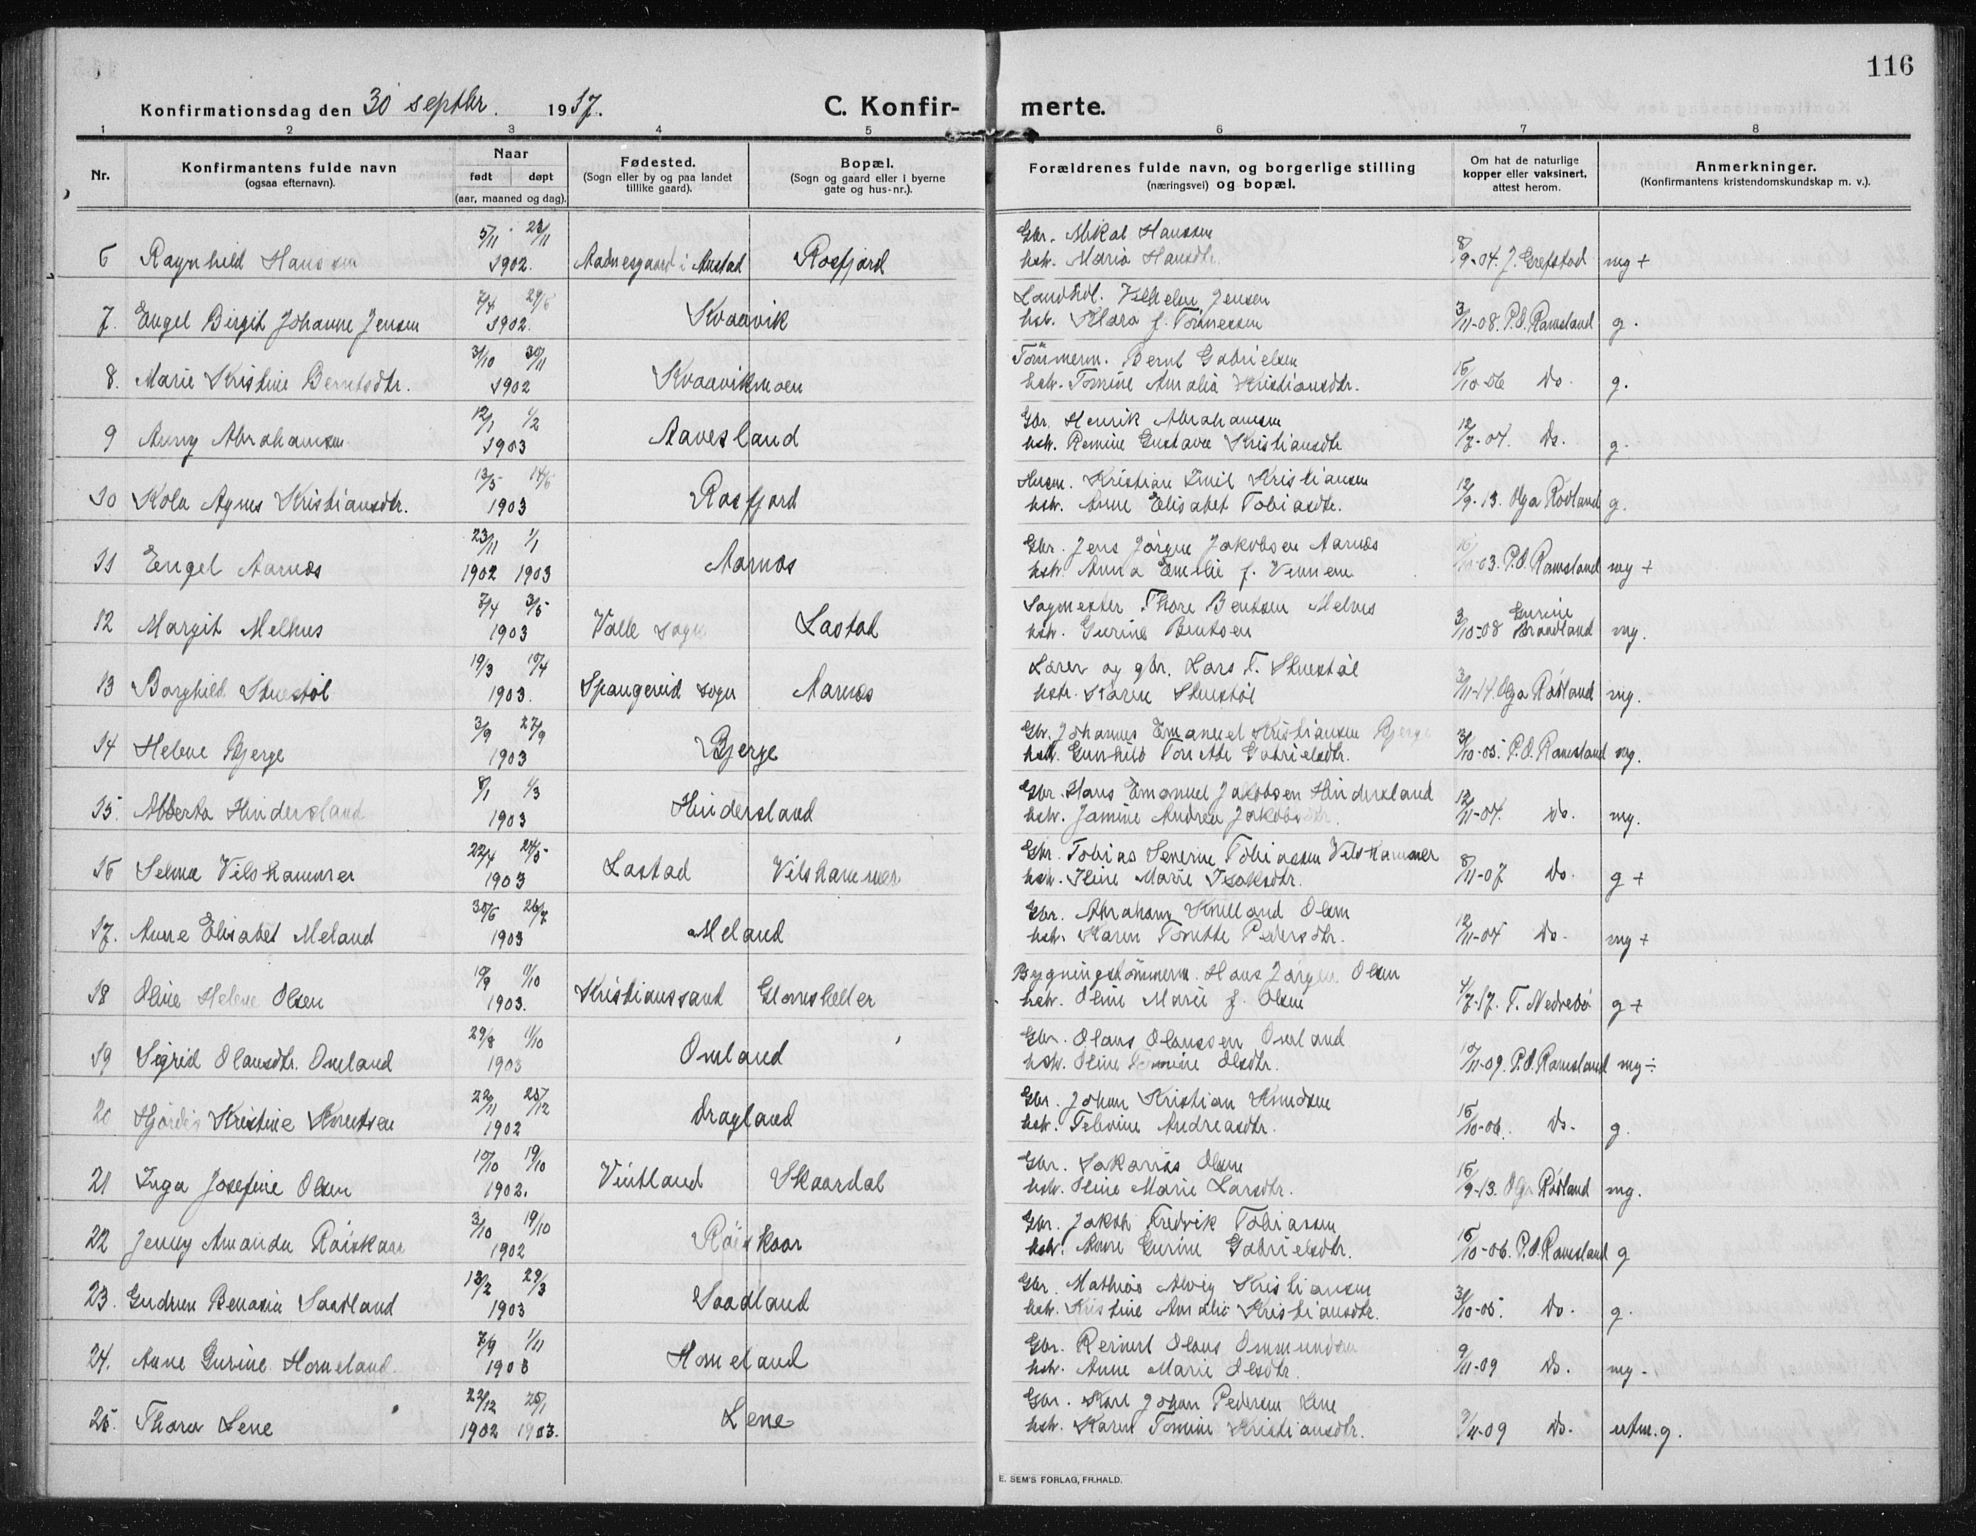 116
Konfirmationsdag den 30 septbr. 1917.
C. Konfirmerte.
1 2 3 4 5 6 7 8
Nr.
Konfirmantens fulde navn
(ogsaa efternavn).
Naar
født døpt
(aar, maaned og dag).
Fødested.
(Sogn eller by og paa landet
tillike gaard).
Bopæl.
(Sogn og gaard eller i byerne
gate og hus-nr.).
Forældrenes fulde navn, og borgerlige stilling
(næringsvei) og bopæl.
Om hat de naturlige
kopper eller vaksinert,
attest herom.
Anmerkninger.
(Konfirmantens kristendomskundskap m. v.).
5/11 23/11 Gbr. Mikal Hanssen
6 Ragnhild Hanssen 1902. i Austad Rosfjord hstr. Maria Hansdtr. 8/9-04. J. Grefstad mg +
7/4 29/6 Landhdl. Vilhelm Jensen
7. Engel Birgit Johanne Jensen 1902. Kvaavik hstr. Klara f. Tönnessen 3/11-08. P.O. Ramsland g.
3/10 30/11 Tömmerm. Bernt Gabrielsen
8. Marie Kristine Berntsdtr. 1902 Kvaavikmoen hstr. Tomine Amalia Kristiansdtr. 15/10-06 Do. g.
12/1 1/2 Gbr. Henrik Abrahamsen
9 Anny Abrahamsen 1903 Aavesland hstr. Remine Gustava Kristiansdtr 12/7-04. Do. g.
13/5 14/6 Kristian Emil Kristiansen
10 Kola Agnes Kristiansdtr. 1903 Rosfjord hstr. Anne Elisabet Tobiasdtr. 12/9-13. Olga Rödland g.
23/11 1/1 Gbr. Jens Jörgen Jakobsen Aarnæs
11 Engel Aarnæs 1902 1903 Aarnæs hstr. Anna Emelie f. P.O. Ramsland mg +
7/4 3/5 Sagmester Thore Bentsen Melhus
12 Margit Melhus 1903 Valle sogn Lastad hstr. Gurine Bentsen 3/10-08 Gurine Brandland mg.
19/3 10/4 Lærer og gbr. Lars T. Stuestöl
13 Borghild Stuestöl 1903. Spangereid sogn Aarnæs hstr. Karen Stuestöl 3/11-14 Olga Rödland mg.
3/9 27/9 Gbr. Johannes Emanuel Kristiansen Bjerge
14 Helene Bjerge 1903 Bjerge hstr. Gunhild Tonette Gabrielsdtr. 3/10-05. P.O. Ramsland mg.
8/1 1/3 Gbr. Hans Emanuel Jakobsen Hindersland
15. Alberta Hindersland 1903 Hindersland hstr. Jamine Andrea Jakobsdtr. 12/11-04. Do. mg.
22/4 24/5 Gbr. Tobias Severin Tobiassen Vilskammer
16 Selma Vilskammer 1903 Lastad Vilskammer hstr. Iline Marie Isaksdtr. 8/11-07 Do. g +
30/6 26/7 Gbr. Abraham Olsen
17. Anne Elisabet Meland 1903 Meland hstr. Karen Tonette Pedersdtr. 12/11-04 Do. mg +
10/9 1/10 Bygningstömmerm. Hans Jörgen Olsen
18 Oline Helene Olsen 1903. Kristianssand Glomsheller hstr. Oline Marie f. Olsen 4/7-17. T. Nedrebö g +
29/8 11/10 Gbr. Olaus Olaussen Omland
19 Sigrid Olausdtr. Omland 1903 Omland hstr. Oline Tomine Olsdtr. 10/11-09. P.O. Ramsland mg ÷
22/11 25/12 Gbr. Johan Kristian Knudsen
20 Hjördis Kristine Knutsen 1902 Dragland hstr. Andreasdtr. 15/10-06. Do. g.
10/10 19/10 Gbr. Sakarias Olsen
21 Inga Josefine Olsen 1902. Vintland Skaardal hstr. Oline Marie Larsdtr. 15/9-13. Olga Rödland mg.
3/10 19/10 Gbr. Jakob Fredrik Tobiassen
22 Jenny Amanda Röiskaar 1902 Röiskaar hstr. Anne Gurine Gabrielsdtr. 15/10-06. P.O. Ramsland g
13/2 29/3 Gbr. Mathias Alvig Kristiansen
23. Gudrun Saadland 1903 Saadland hstr. Kristine Amalie Kristiansdtr. 3/10-05. Do. g.
7/9 1/11 Gbr. Reinert Olaus Ommundsen
24. Anne Gurine Homeland. 1903 Homeland hstr. Anne Marie Olsdtr. 9/11-09 Do. mg -.
22/12 25/1 Gbr. Karl Johan Pedersen Lene
25 Thora Lene 1902 1903. Lene hstr. Karen Tomine Kristiansdtr. 9/11-09 Do. utm. g.
E. SEM'S FORLAG, FR.HALD.